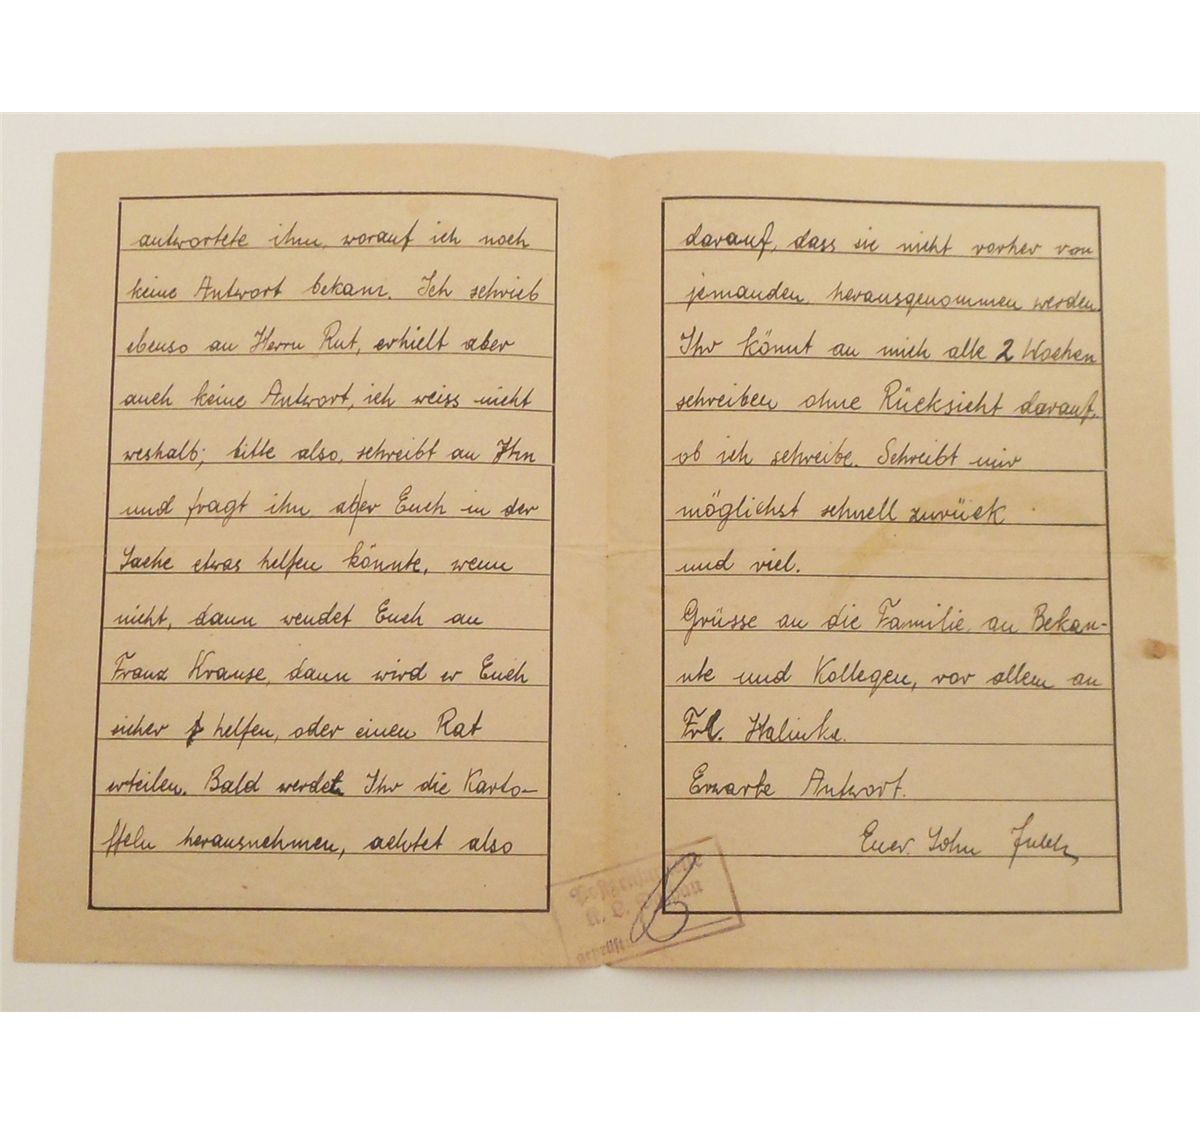 antwortete ihm, worauf ich noch
keine Antwort bekam. Ich schrieb
ebenso an Herrn Rut, erhielt aber
auch keine Antwort, ich weiss nicht
weshalb; bitte also, schreibt an Ihn
und fragt ihn, ober Euch in der
Sache etwas helfen könnte, wenn
nicht, dann wendet Euch an
Franz Krause, dann wird er Euch
sicher helfen, oder einen Rat
erteilen. Bald werdet Ihr die Karto-
ffeln herausnehmen, achtet also
darauf, dass sie nicht vorher von
jemanden herausgenommen werden.
Ihr könnt an mich alle 2 Wochen
schreiben ohne Rücksicht darauf,
ob ich schreibe. Schreibt mir
möglichst schnell zurück
und viel.
Grüsse an die Familie, an Bekan-
nte und Kollegen, vor allem an
Frl. Halinka.
Erwarte Antwort.
Euer Sohn
Postzensurstelle
K. L.
geprüft